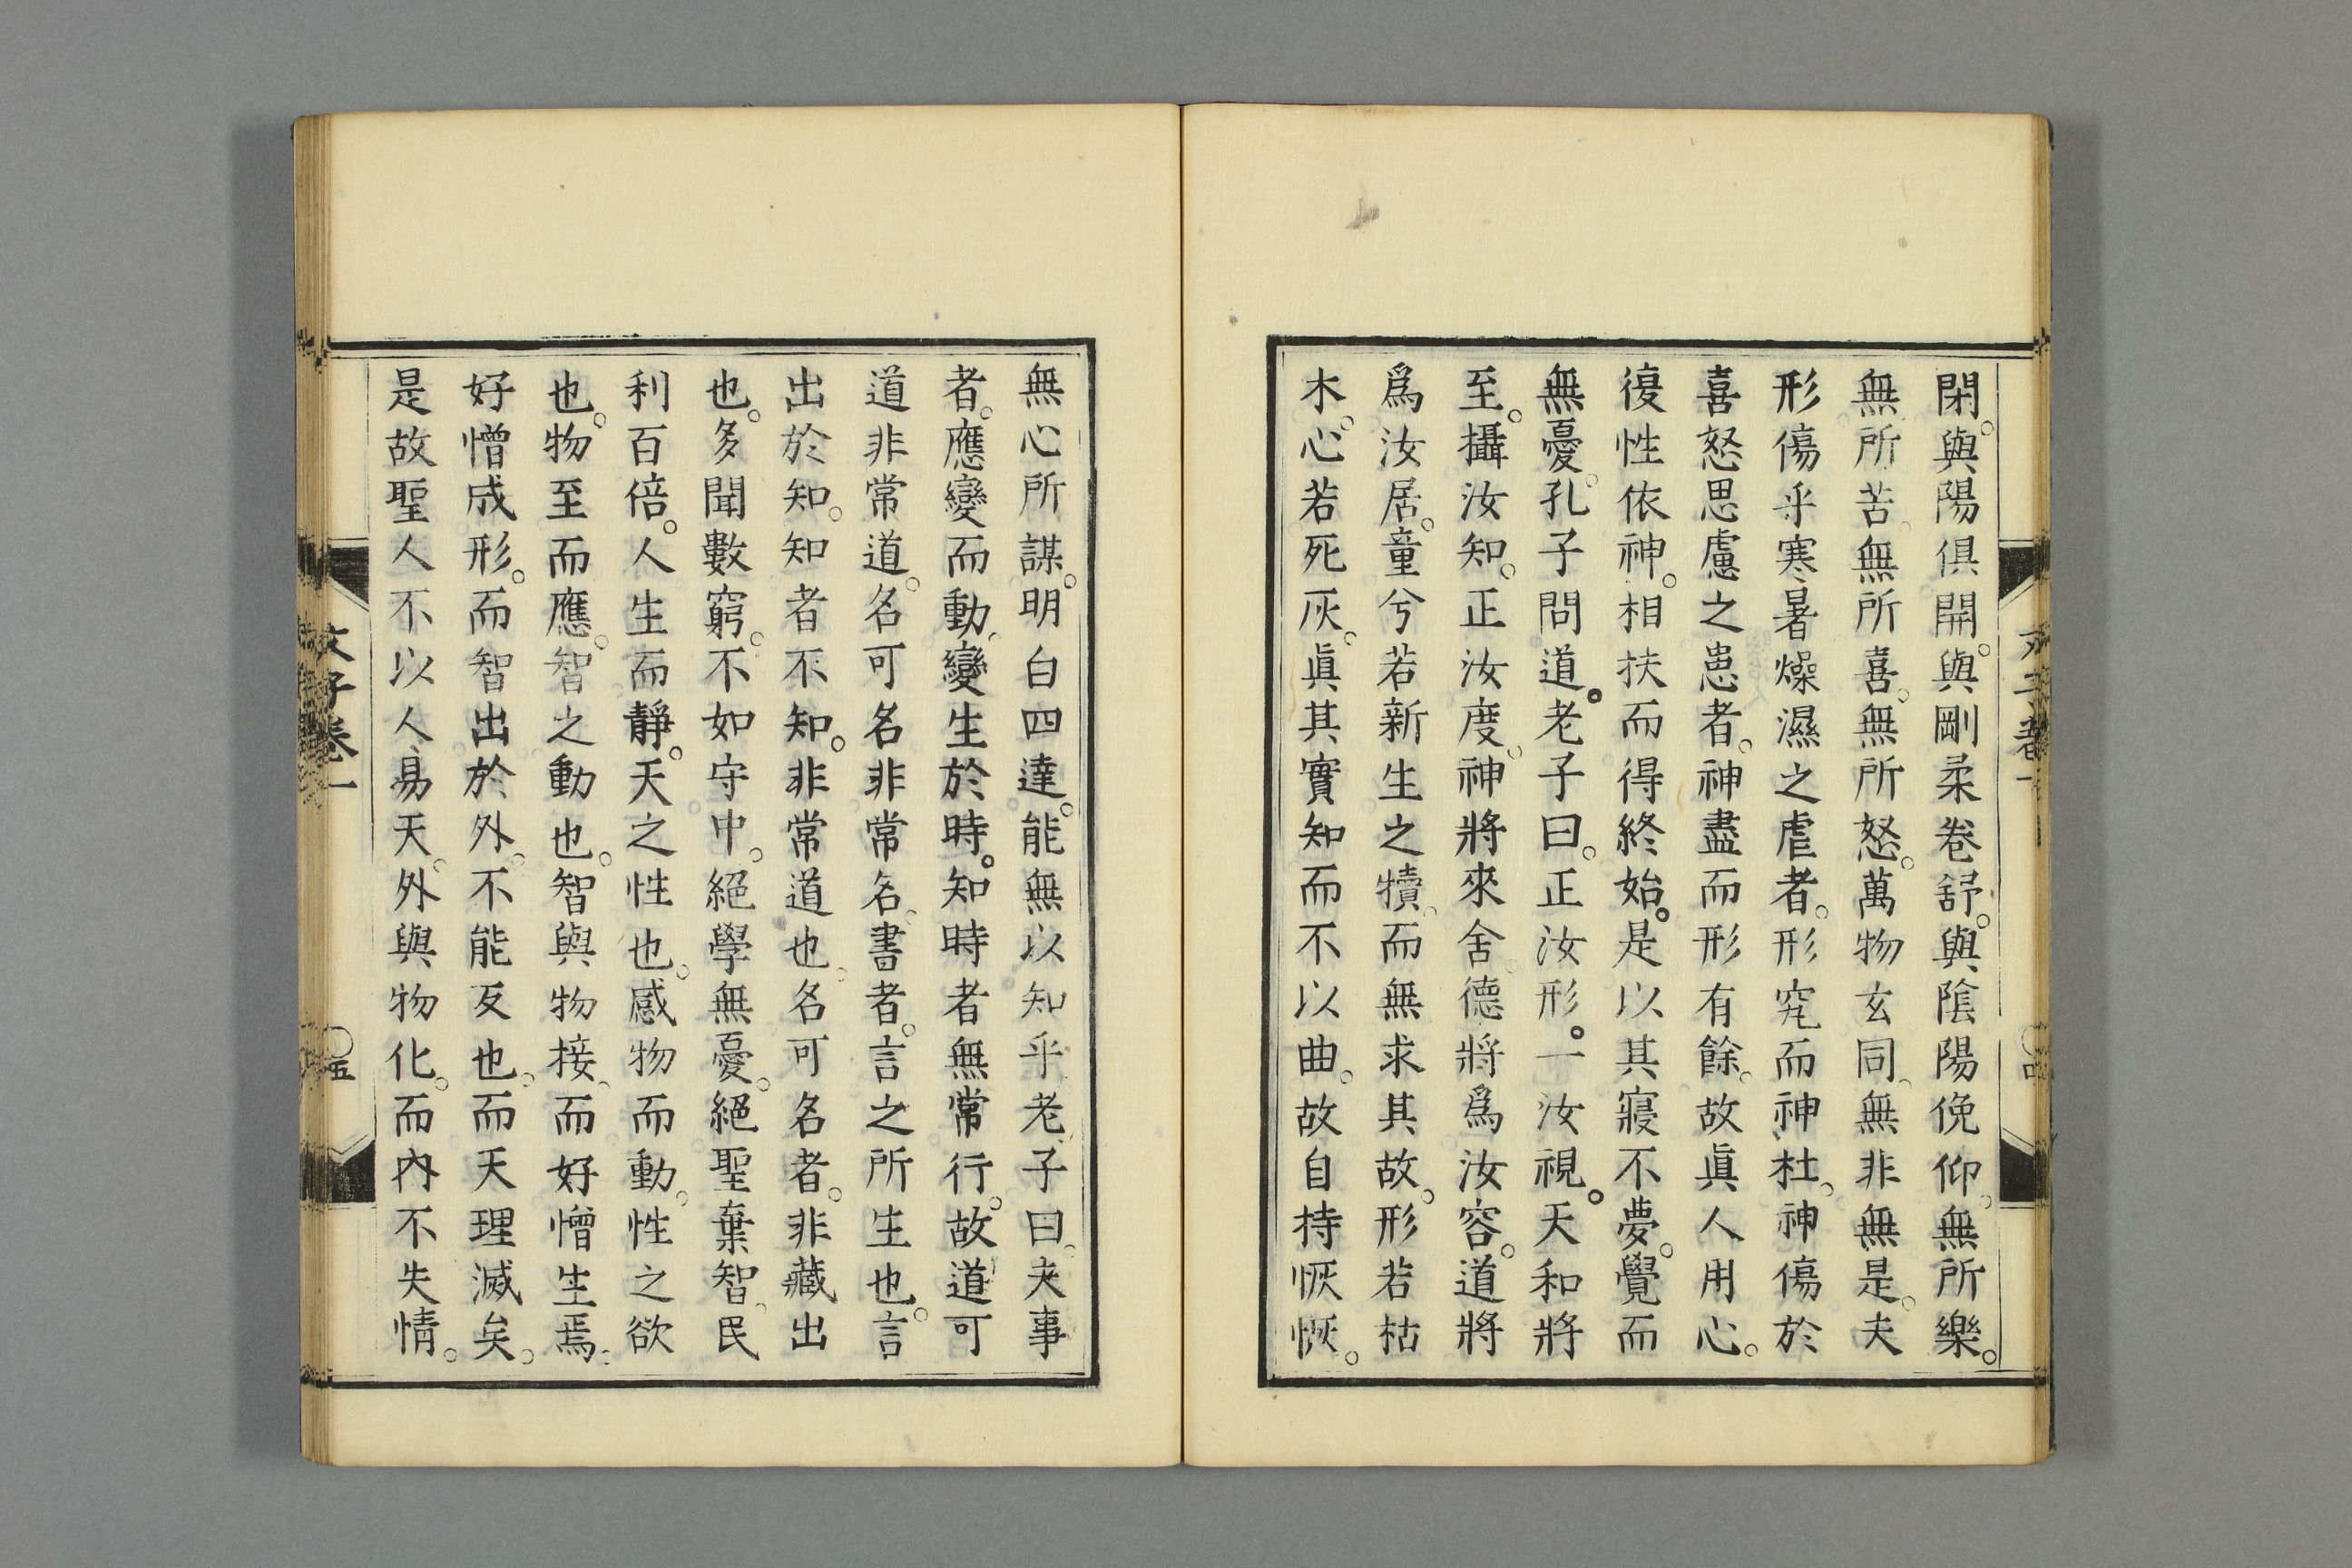 閉。與陽俱開。與剛柔卷舒。與陰陽俛仰。無所樂。
無所苦。無所喜。無所怒。萬物玄同。無非無是。夫
形傷乎寒暑燥濕之虐者。形究而神杜。神傷於
喜怒思慮之患者。神盡而形有餘。故眞人用心。
復性依神。相扶而得終始。是以其寢不夢。覺而
無憂。孔子問道。老子曰。正汝形。一汝視。天和將
至。攝汝知。正汝度。神將來舍。德將爲汝容。道將
爲汝居。童兮若新生之犢。而無求其故。形若枯
木。心若死灰。眞其實知而不以曲。故自持恢恢。
無心所謀。明白四達。能無以知乎。老子曰。夫事
者。應變而動。變生於時。知時者無常行。故道可
道非常道。名可名非常名。書者。言之所生也。言
出於知。知者不知。非常道也。名可名者。非藏出
也。多聞數窮。不如守中。絕學無憂。絕聖棄智。民
利百倍。人生而靜。天之性也。感物而動。性之欲
也。物至而應。智之動也。智與物接。而好憎生焉。
好憎成形。而智出於外。不能反也。而天理滅矣。
是故聖人不以人易天。外與物化。而內不失情。
文子卷一
五